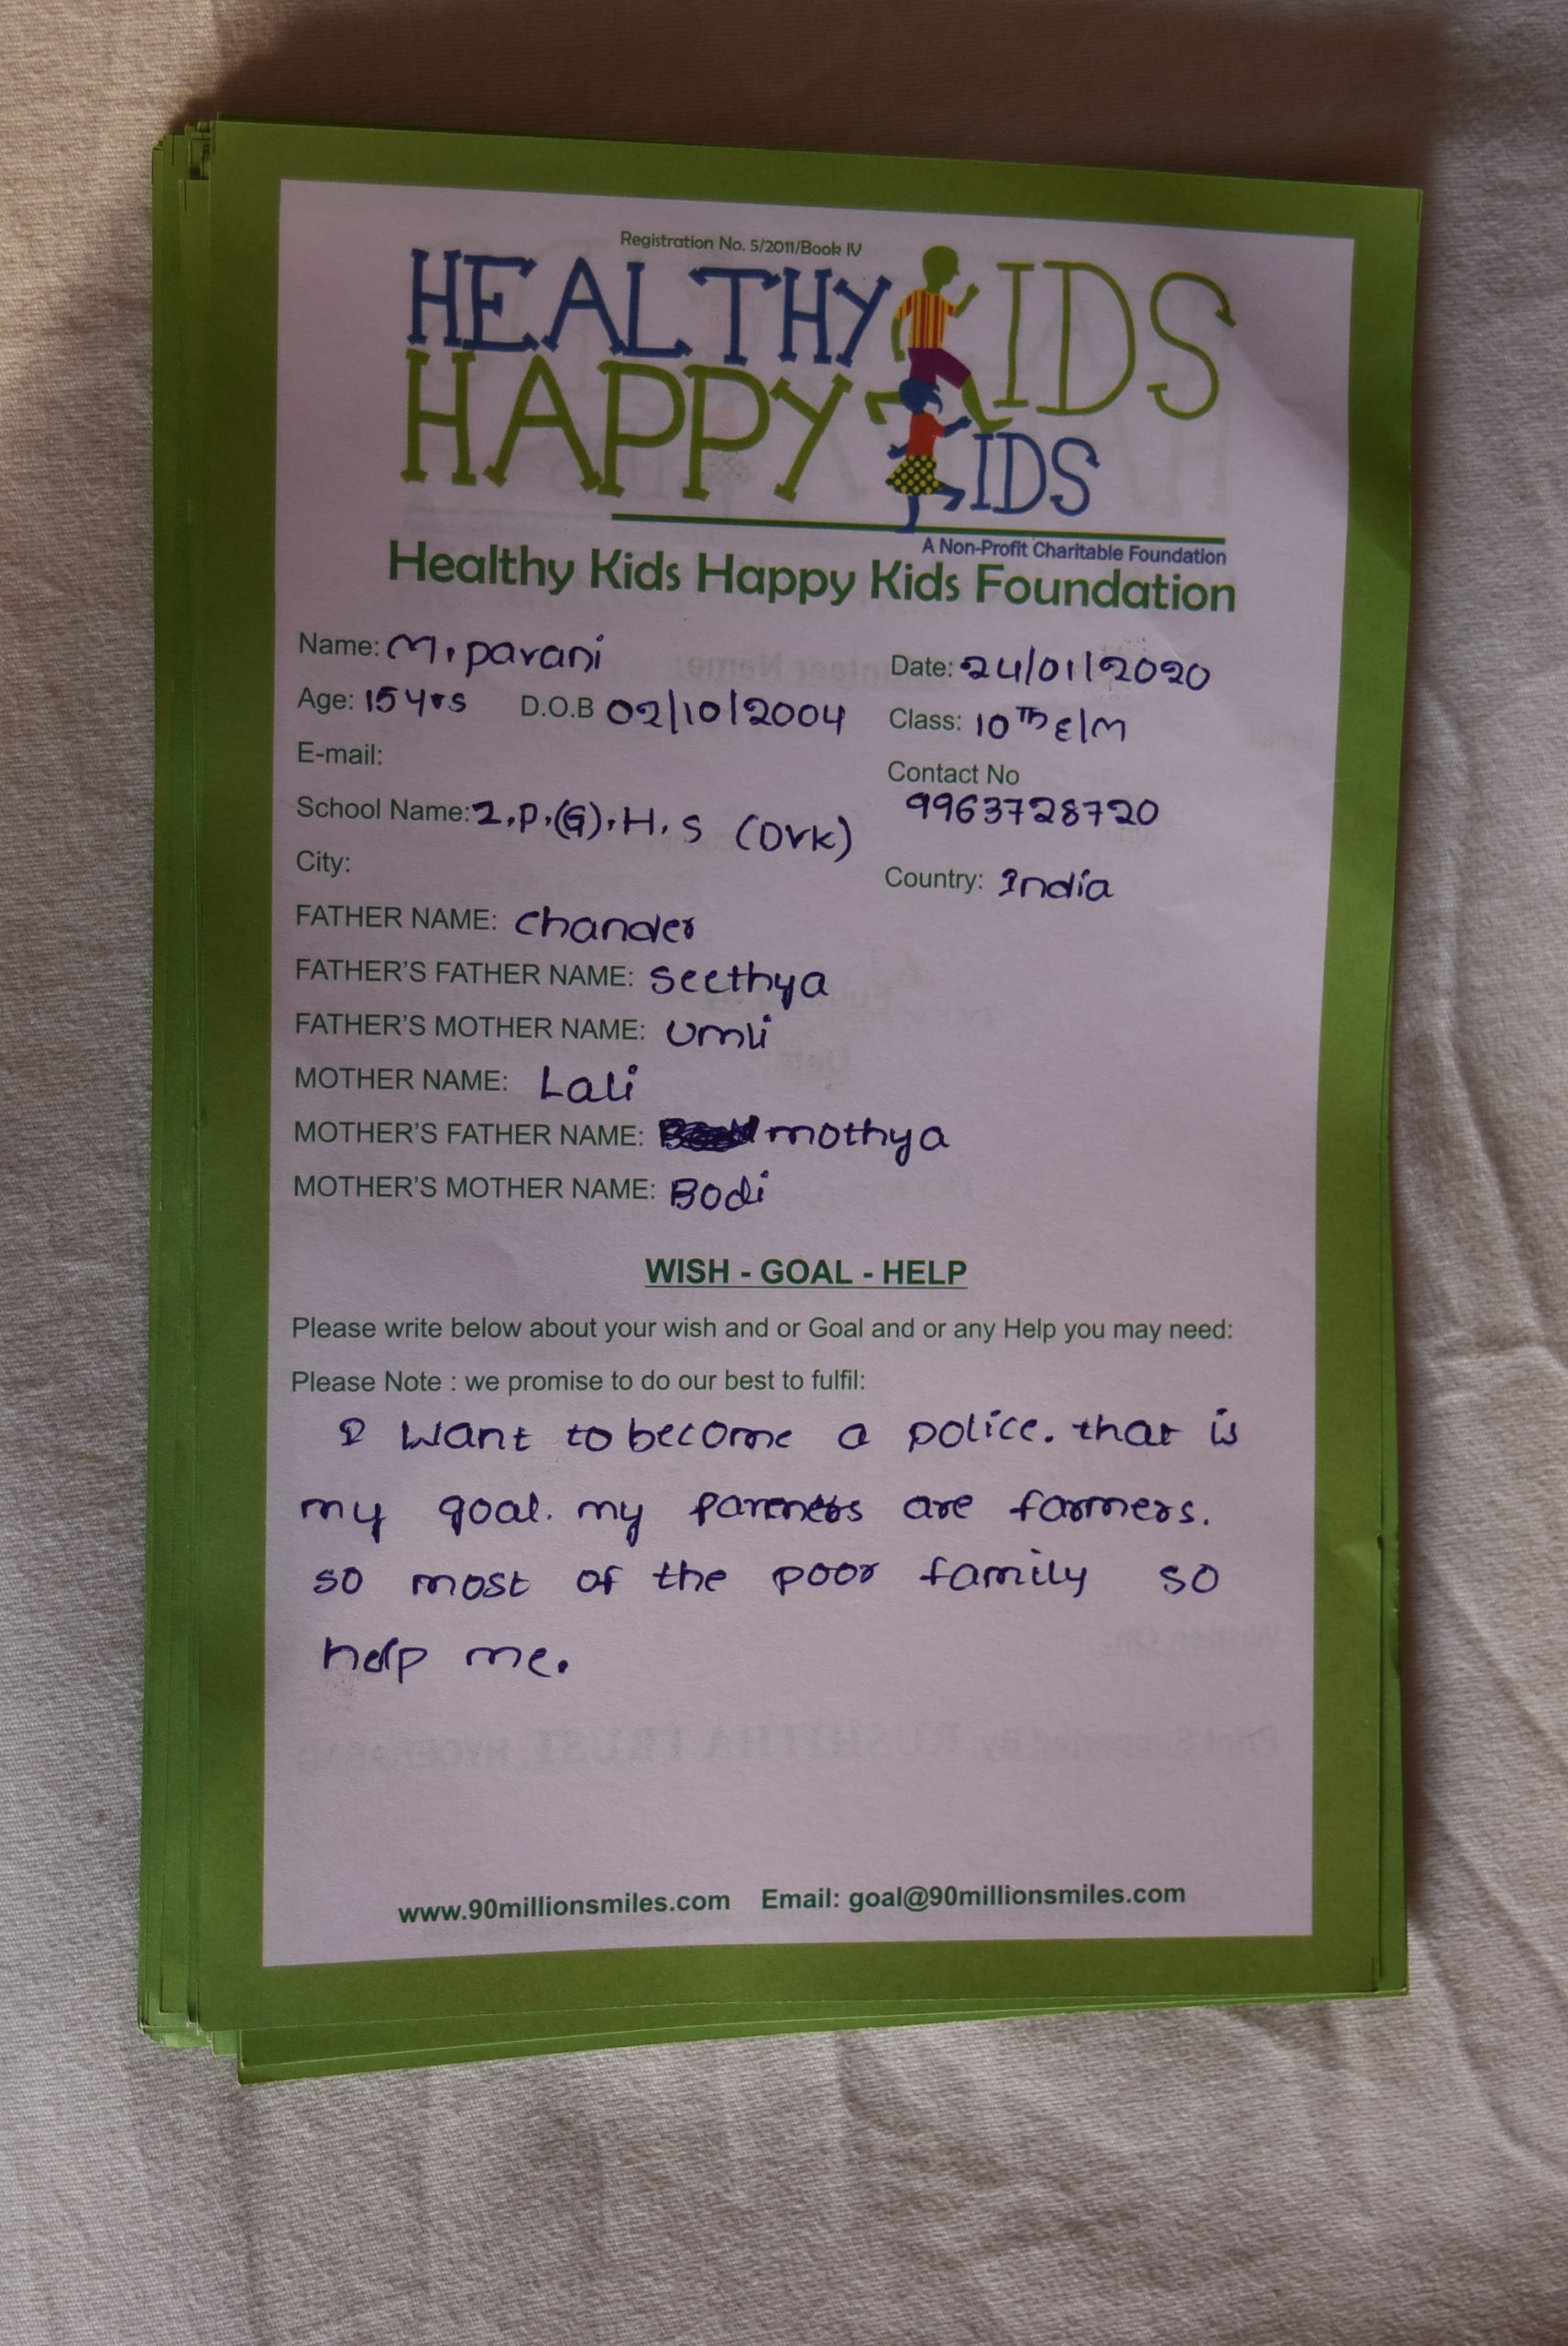 Registration No. 5/2011/Book IV
HEALTHY KIDS
HAPPY KIDS
A Non-Profit Charitable Foundation
Healthy Kids Happy Kids Foundation
Name: M. pavani
Date: 24/01/2020
Age: 15 yrs D.O.B 02/10/2004
Class: 10Th E/M
E-mail:
Contact No
9963728720
School Name: Z.P.(G).H.S (DVK)
City:
Country: India
FATHER NAME: chander
FATHER'S FATHER NAME: seethya
FATHER'S MOTHER NAME: umli
MOTHER NAME: Lali
MOTHER'S FATHER NAME: mothya
MOTHER'S MOTHER NAME: Bodi
WISH - GOAL - HELP
Please write below about your wish and or Goal and or any Help you may need:
Please Note : we promise to do our best to fulfil:
I want to become a police. that is
my goal. my parents are farmers.
so most of the poor family so
help me.
www.90millionsmiles.com Email: goal@90millionsmiles.com